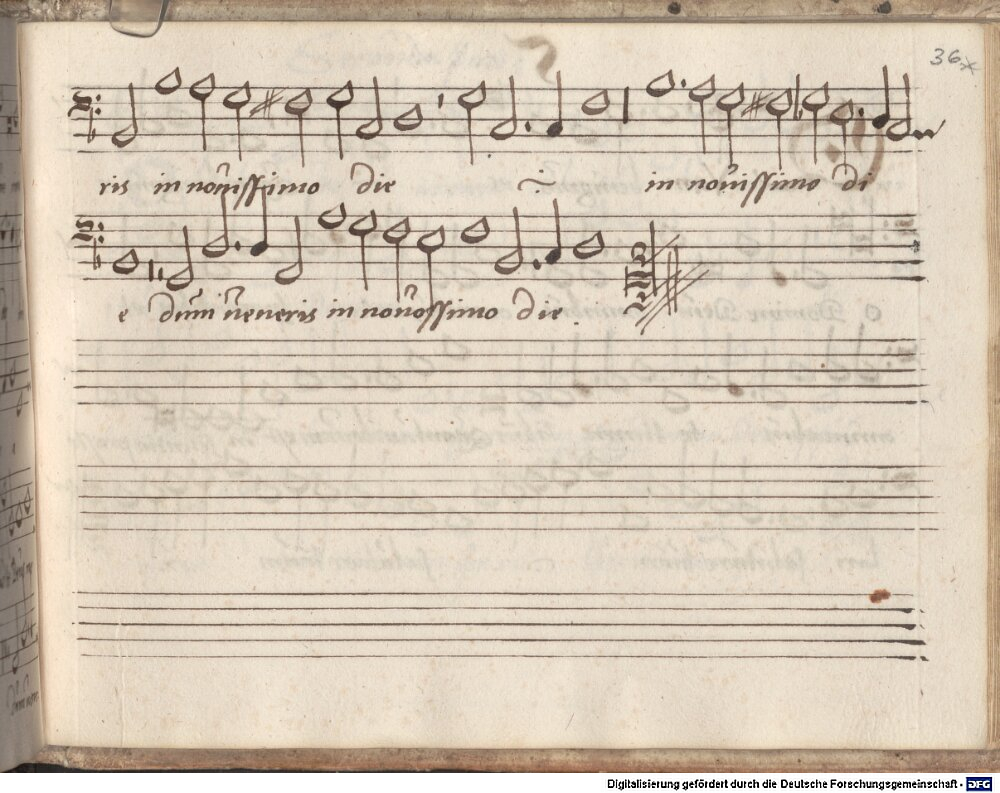 36
ris in nouissimo die in nouissimo di
e dum ueneris in nouossimo die.
Digitalisierung gefördert durch die Deutsche Forschungsgemeinschaft - DFG